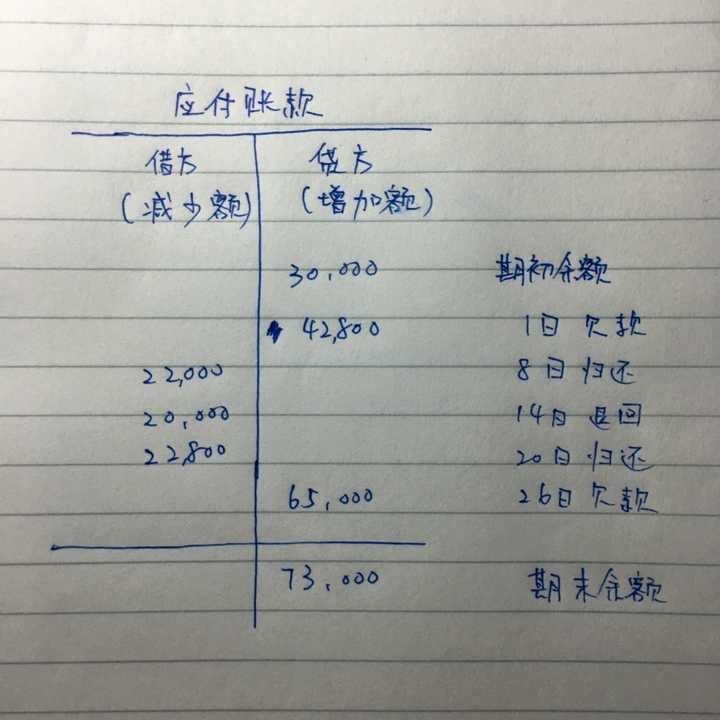 应付账款
借方 贷方
(减少额) (增加额)
30,000 期初余额
42,800 1日 欠款
22,000 8日 归还
20,000 14日 退回
22,800 20日 归还
65,000 26日 欠款
73,000 期末余额